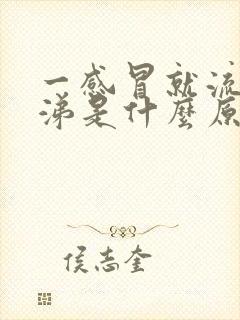 一感冒就流
涕是什麼原
侯志奎